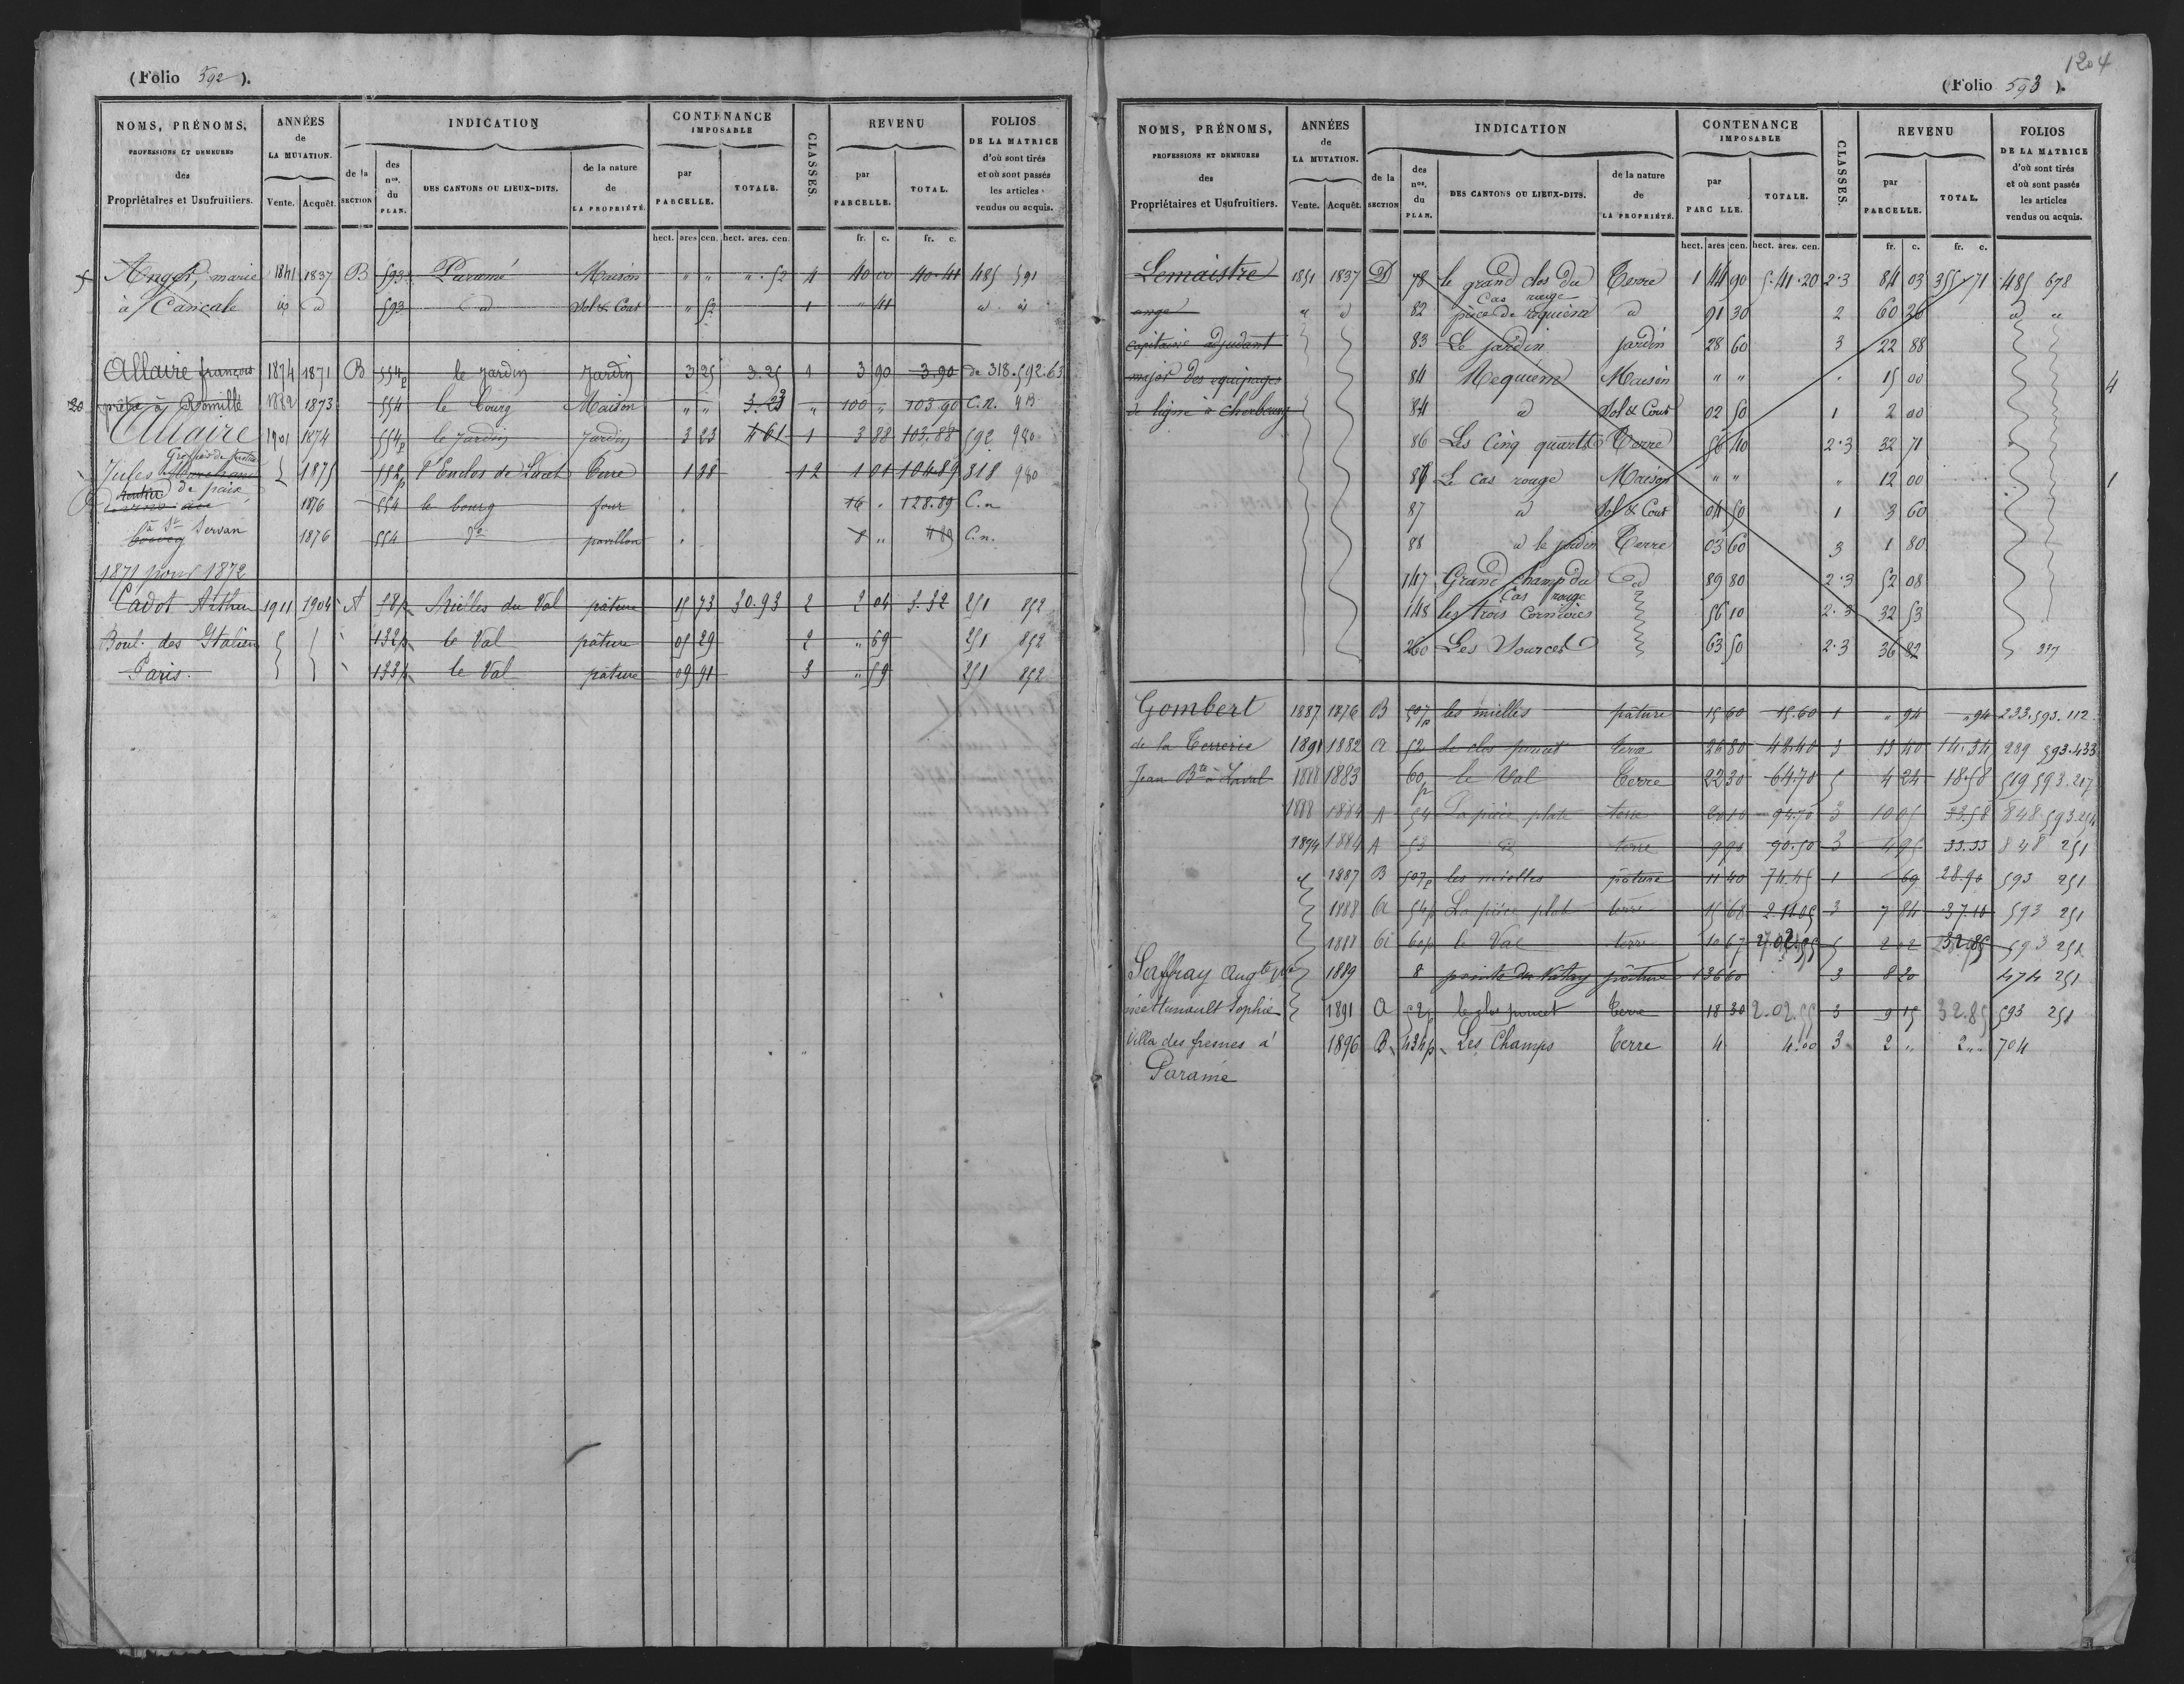 (Folio 592).
NOMS, PRÉNOMS, PROFESSIONS ET DEMEURES des Propriétaires et Usufruitiers.
ANNÉES de LA MUTATION. Vente. Acquêt.
INDICATION
de la SECTION
des nos. du PLAN.
DES CANTONS OU LIEUX-DITS.
de la nature de LA PROPRIÉTÉ.
CONTENANCE IMPOSABLE
par PARCELLE. TOTALE.
CLASSES.
REVENU
par PARCELLE. TOTAL.
FOLIOS DE LA MATRICE d'où sont tirés et où sont passés les articles vendus ou acquis.
hect. ares cen. hect. ares. cen. fr. c. fr. c.
Anger, marie 1841 1837 B 593 Paramé Maison " " " . 52 4 40 00 40.41 485 591
à Cancale id d 593 d Sol & Cour " 52 1 " 41 d d
Allaire françois 1874 1871 B 554p le Jardin Jardin 3 25 3.25 1 3 90 3.90 de 318.592.63
20 prêtre à Romillé 1882 1873 554 le bourg Maison " " 3.23 " 100 " 103 90 C.n.
Allaire 1901 1874 554p le Jardin Jardin 3 23 4 61 1 3 88 103.88 592 980
Greffier de Justice
Jules 1875 558p l'Enclos de Lucet Terre 1 38 1 2 1 01 104 89 318 980
de paix 1876 554 le bourg four 16 " 128.89 C.n
à St Servan 1876 554 do pavillon 8 " C.n.
1871 pour 1872
Cadot Arthur 1911 1904 A 58p Mielles du Val pâture 15 73 30.93 2 2 04 3.32 251 852
Boul. des Italiens 132p le Val pâture 05 29 2 " 69 251 852
Paris. 133p le Val pâture 09 91 3 " 59 251 852
1204
(Folio 593).
NOMS, PRÉNOMS, PROFESSIONS ET DEMEURES des Propriétaires et Usufruitiers.
ANNÉES de LA MUTATION. Vente. Acquêt.
INDICATION
de la SECTION
des nos. du PLAN.
DES CANTONS OU LIEUX-DITS.
de la nature de LA PROPRIÉTÉ.
CONTENANCE IMPOSABLE
par PARC LLE. TOTALE.
CLASSES.
REVENU
par PARCELLE. TOTAL.
FOLIOS DE LA MATRICE d'où sont tirés et où sont passés les articles vendus ou acquis.
hect. ares cen. hect. ares. cen. fr. c. fr. c.
Lemaistre 1851 1837 D 78 le grand clos du Terre 1 44 90 5.41.20 2.3 84 03 355 71 485 678
Cas rouge
ange " d 82 pièce de requiem d 91 30 2 60 26 d "
capitaine adjudant 83 Le jardin jardin 28 60 3 22 88
major des equipages 84 Requiem Maison " " " 15 00 4
de ligne à Cherbourg 84 d Sol & Cour 02 50 1 2 00
86 Les Cinq quarts Terre 56 40 2.3 32 71
87 Le Cas rouge Maison " " " 12 00 1
87 d Sol & Cour 04 50 1 3 60
88 d le jardin Terre 03 60 3 1 80
147 Grand Champ du d 89 80 2.3 52 08
Cas rouge
148 les trois Cornières 56 10 2.3 32 53
260 Les Sources 63 50 2.3 36 82
Gombert 1887 1876 B 507p les mielles pâture 15 60 15.60 1 " 94 " 94 233.593.112
de la Terrerie 1891 1882 A 52 le clos poucet terre 26 80 42.40 3 13 40 14.34 289 593.433
Jean Bte à Laval 1888 1883 60p le Val Terre 22 30 64.70 5 4 24 18.58 519 593.217
1888 1884 A 54 La pièce plate terre 94.70 3 33.58 848.593.251
1894 1884 A 53 d terre 9 90 90.50 3 4 95 33.33 848 251
1887 B 507p les mielles pâture 11 40 74.45 1 69 28.90 593 251
1888 A 54p La pièce plate terre 15 68 3 7 84 37.10 593 251
1888 A 60p le Val terre 10 67 5 2 02 32.85 593 251
Saffray Augte 1889 8 pointe du Nutay pâture 1 36 60 3 8 20 474 251
née Hunault Sophie 1891 A 52p le clos poucet Terre 18 30 2.02.55 3 9 15 32.85 593 251
Villa des fresnes à 1896 B 434p Les Champs Terre 4 4.00 3 2 " 2 " 704
Paramé